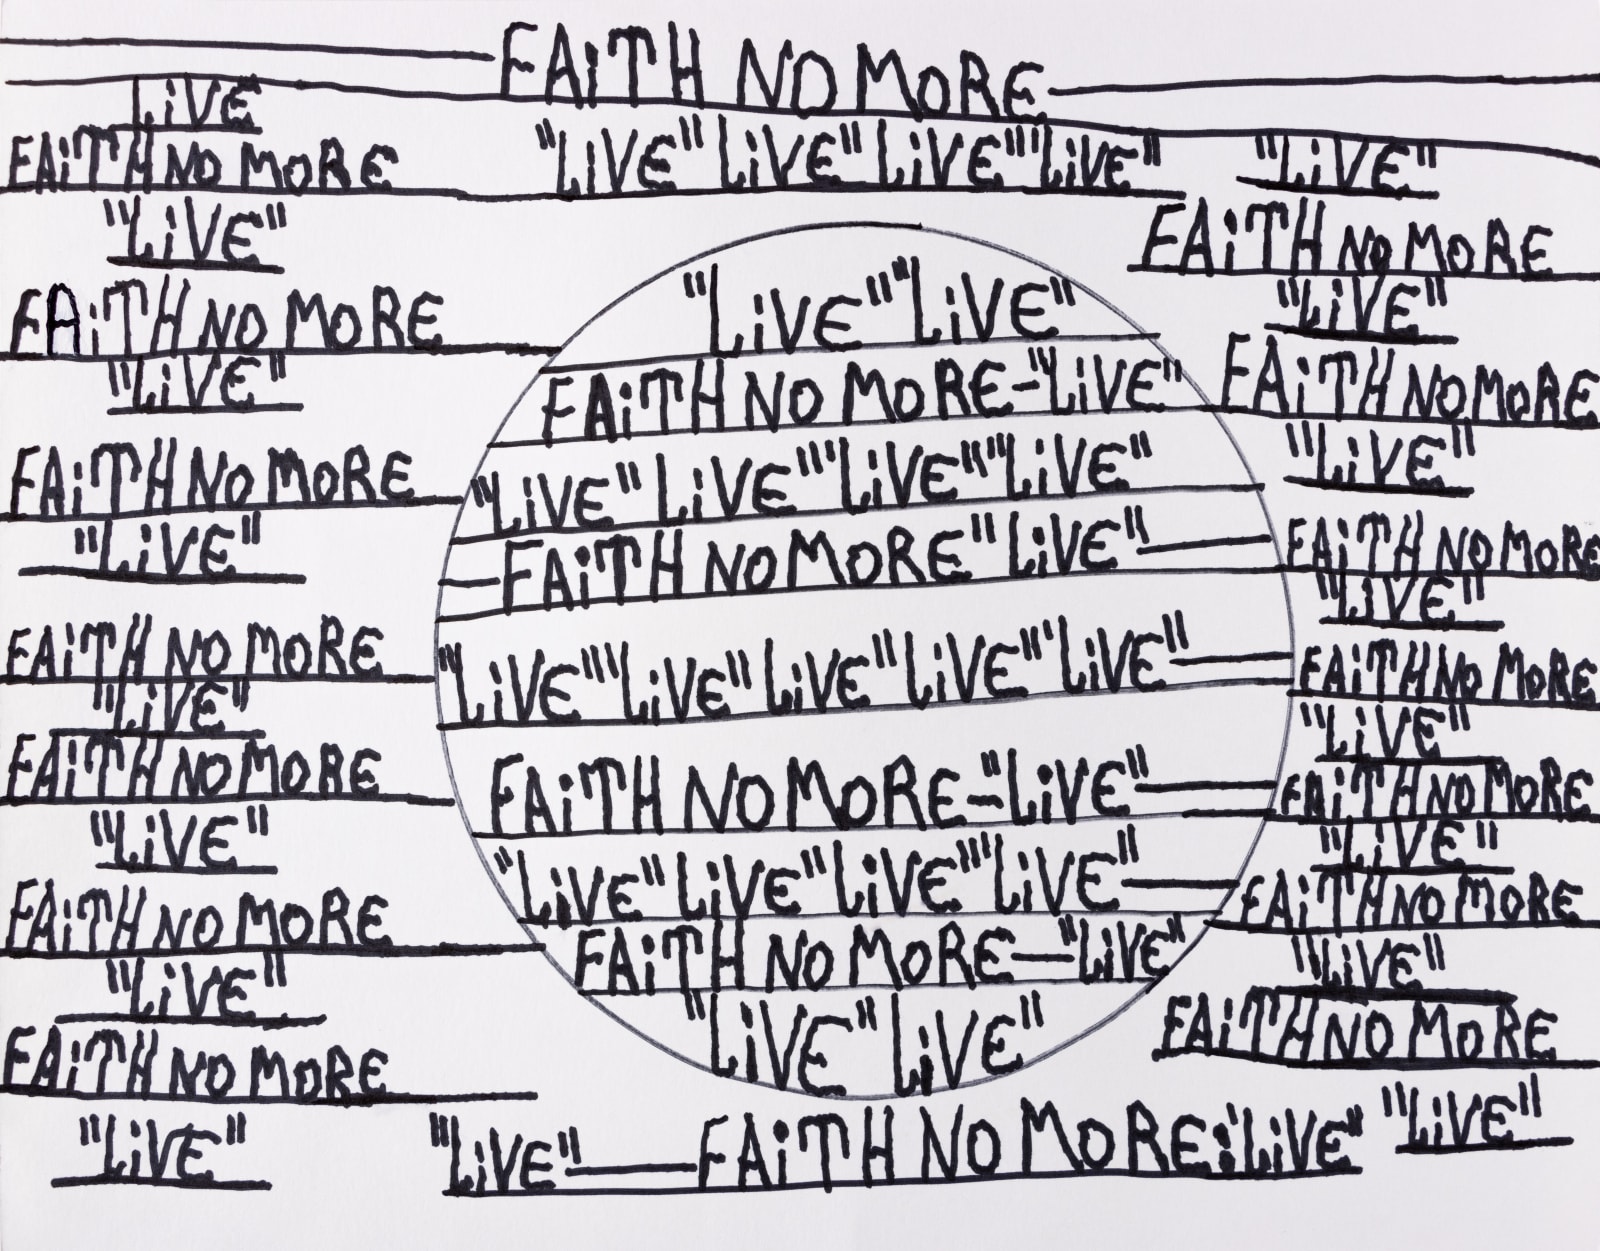 FAiTH NO MORE
LiVE
FAiTH NO MORE
"LiVE"
FAiTH NO MORE
"LiVE"
FAiTH NO MORE
"LiVE"
FAiTH NO MORE
"LiVE"
FAiTH NO MORE
"LiVE"
FAiTH NO MORE
"LiVE"
FAiTH NO MORE
"LiVE"
"LiVE" LiVE" LiVE""LiVE"
"LiVE""LiVE"
FAiTH NO MORE-"LiVE"
"LiVE" LiVE"'LiVE""LiVE"
FAiTH NO MORE"LiVE"
"LiVE""LiVE" LiVE" LiVE"'LiVE"
FAiTH NO MORE-"LiVE"
"LiVE" LiVE" LiVE""LiVE"
FAiTH NO MORE—"LiVE"
"LiVE" LiVE"
"LiVE"—FAiTH NO MORE:"LiVE"
"LiVE"
FAiTH NO MORE
"LiVE"
FAiTH NO MORE
"LiVE"
FAiTH NO MORE
"LiVE"
FAiTH NO MORE
"LiVE"
FAiTH NO MORE
"LiVE"
FAiTH NO MORE
"LiVE"
FAiTH NO MORE
"LiVE"